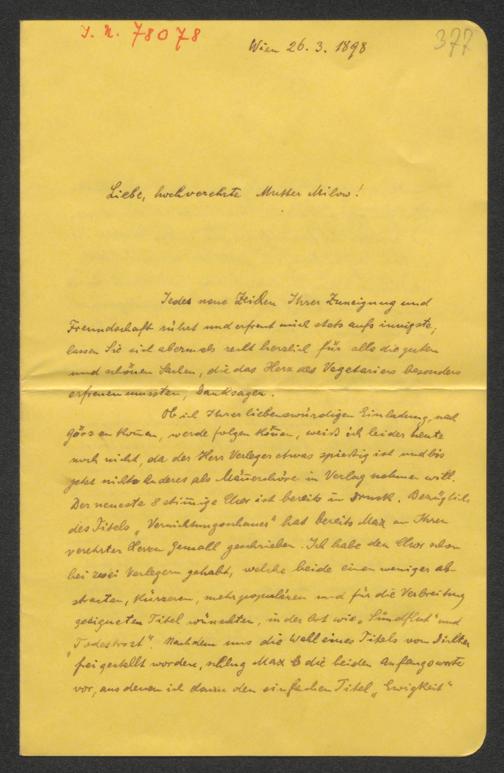 I. N. 78078
377
Wien 26. 3. 1898
Liebe, hochverehrte Mutter Milow!
Jedes neue Zeichen Ihrer Zuneigung und
Freundschaft rührt und erfreut mich stets aufs innigste,
lassen Sie sich abermals recht herzlich für alle die guten
und schönen Sachen, die das Herz des Vegetariers besonders
erfreuen mussten, Danksagen.
Ob ich Ihrer liebenswürdigen Einladung, nach
Görz zu kommen, werde folgen können, weiß ich leider heute
noch nicht, da der Herr Verleger etwas spiessig ist und bis
jetzt nichts Anderes als Männerchöre in Verlag nehmen will.
Der neueste 8 stimmige Chor ist bereits in Druck. Bezüglich
des Titels „Vernichtungsschauer" hat bereits Max an Ihren
verehrten Herrn Gemall geschrieben. Ich habe den Chor schon
bei zwei Verlegern gehabt, welche beide einen weniger ab-
strakten, kürzeren, mehr populären und für die Verbreitung
geeigneten Titel wünschten, in der Art wie „Sündflut" und
„Todestrost". Nachdem uns die Wahl eines Titels vom Dichter
frei gestellt worden, schlug Max die beiden Anfangsworte
vor, aus denen ich dann den einfachen Titel „Ewigkeit"